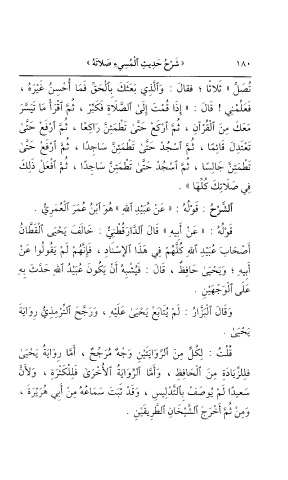 ١٨٠ « شَرْحُ حَدِيثِ الْمُسِيءِ صَلَاتَهُ »
تُصَلِّ » ثَلَاثًا ؛ فقالَ : وَالَّذِي بَعَثَكَ بِالْحَقِّ فَمَا أُحْسِنُ غَيْرَهُ ،
فَعَلِّمْنِي ! قَالَ : « إِذَا قُمْتَ إِلَى الصَّلَاةِ فَكَبِّرْ ، ثُمَّ اقْرَأْ مَا تَيَسَّرَ
مَعَكَ مِنَ الْقُرْآنِ ، ثُمَّ ارْكَعْ حَتَّى تَطْمَئِنَّ رَاكِعًا ، ثُمَّ ارْفَعْ حَتَّى
تَعْتَدِلَ قَائِمًا ، ثُمَّ اسْجُدْ حَتَّى تَطْمَئِنَّ سَاجِدًا ، ثُمَّ ارْفَعْ حَتَّى
تَطْمَئِنَّ جَالِسًا ، ثُمَّ اسْجُدْ حَتَّى تَطْمَئِنَّ سَاجِدًا ، ثُمَّ افْعَلْ ذَلِكَ
فِي صَلَاتِكَ كُلِّهَا » .
الشَّرْحُ : قَوْلُهُ : « عَنْ عُبَيْدِ اللهِ » هُوَ ابْنُ عُمَرَ الْعُمَرِيُّ .
قَوْلُهُ : « عَنْ أَبِيهِ » قَالَ الدَّارَقُطْنِيُّ : خَالَفَ يَحْيَى الْقَطَّانُ
أَصْحَابَ عُبَيْدِ اللهِ كُلَّهُمْ فِي هَذَا الْإِسْنَادِ ، فَإِنَّهُمْ لَمْ يَقُولُوا عَنْ
أَبِيهِ ؛ وَيَحْيَى حَافِظٌ ، قَالَ : فَيُشْبِهُ أَنْ يَكُونَ عُبَيْدُ اللهِ حَدَّثَ بِهِ
عَلَى الْوَجْهَيْنِ .
وَقَالَ الْبَزَّارُ : لَمْ يُتَابَعْ يَحْيَى عَلَيْهِ ، وَرَجَّحَ التِّرْمِذِيُّ رِوَايَةَ
يَحْيَى .
قُلْتُ : لِكُلٍّ مِنَ الرِّوَايَتَيْنِ وَجْهٌ مُرَجِّحٌ ، أَمَّا رِوَايَةُ يَحْيَى
فَلِلزِّيَادَةِ مِنَ الْحَافِظِ ، وَأَمَّا الرِّوَايَةُ الْأُخْرَى فَلِلْكَثْرَةِ ، وَلِأَنَّ
سَعِيدًا لَمْ يُوصَفْ بِالتَّدْلِيسِ ، وَقَدْ ثَبَتَ سَمَاعُهُ مِنْ أَبِي هُرَيْرَةَ ،
وَمِنْ ثَمَّ أَخْرَجَ الشَّيْخَانِ الطَّرِيقَيْنِ .